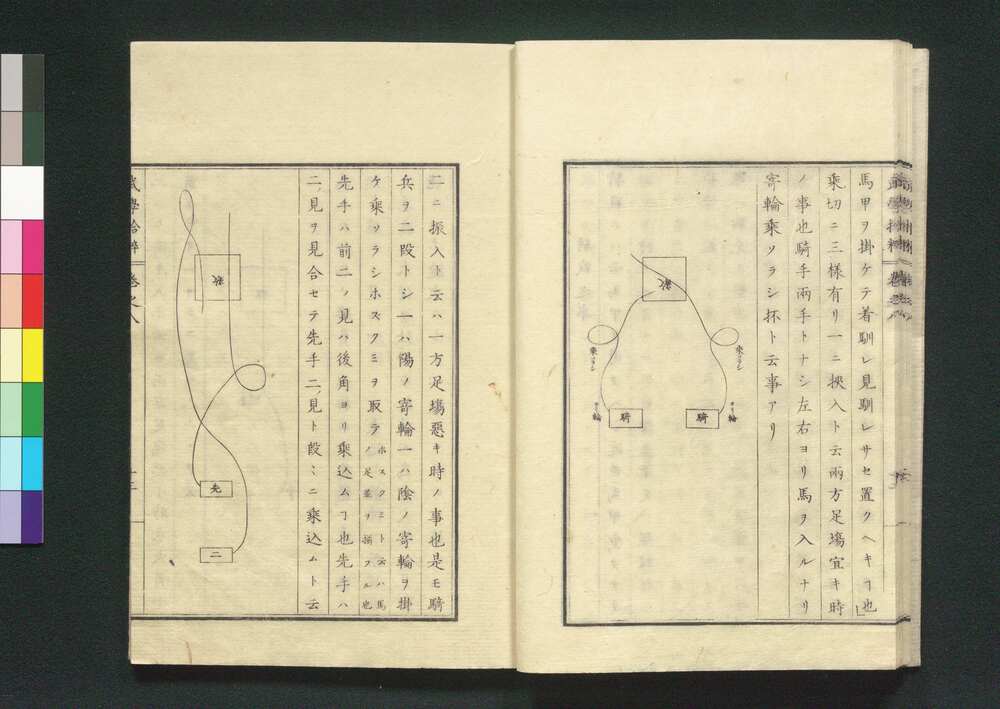 馬甲ヲ掛ケテ着馴レ見馴レサセ置クヘキヿ也」
乘切ニ三樣有リ一ニ挾入ト云兩方足塲宜キ時
ノ事也騎手兩手トナシ左右ヨリ馬ヲ入ルナリ
寄輪乘ソラシ抔ト云事アリ
敵
乘ソラシ
乘ソラシ
ヨリ輪
騎
ヨリ輪
騎
二ニ振入ト云ハ一方足塲惡キ時ノ事也是モ騎
兵ヲ二段トシ一ハ陽ノ寄輪一ハ陰ノ寄輪ヲ掛
ケ乘ソラシホスクミヲ取ラ
ホスクミト云ハ馬
ノ足並ヲ揃フル也
先手ハ前二ノ見ハ後角ヨリ乘込ムヿ也先手ハ
二ノ見ヲ見合セテ先手二ノ見ト段〻ニ乘込ムト云
敵
先
二
武學拾粹
卷之八